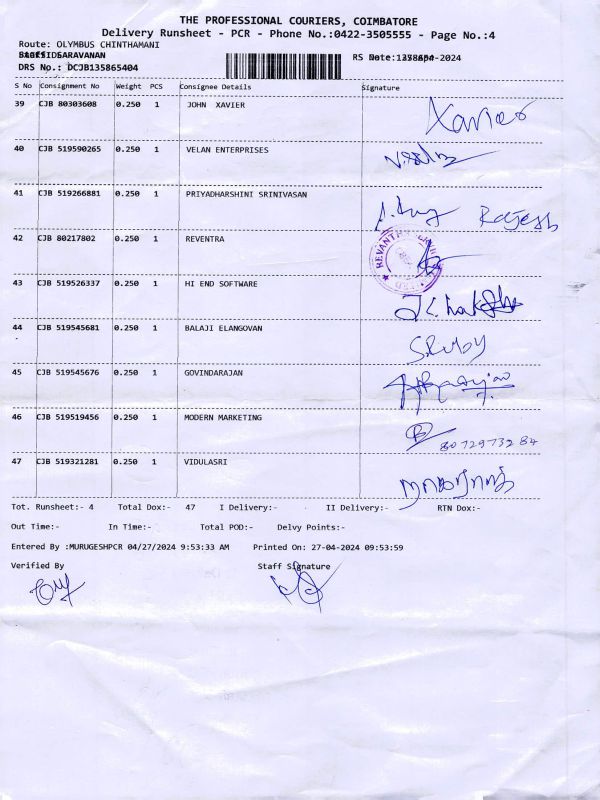 THE PROFESSIONAL COURIERS, COIMBATORE
Delivery Runsheet - PCR - Phone No.:0422-3505555 - Page No.:4
Route: OLYMBUS CHINTHAMANI
SARAVANAN
DRS No.: DCJB135865404
S No Consignment No Weight PCS Consignee Details Signature
39 CJB 80303608 0.250 1 JOHN XAVIER Xavier
40 CJB 519590265 0.250 1 VELAN ENTERPRISES
41 CJB 519266881 0.250 1 PRIYADHARSHINI SRINIVASAN Rajesh
42 CJB 80217802 0.250 1 REVENTRA
43 CJB 519526337 0.250 1 HI END SOFTWARE
44 CJB 519545681 0.250 1 BALAJI ELANGOVAN S.Ruby
45 CJB 519545676 0.250 1 GOVINDARAJAN
46 CJB 519519456 0.250 1 MODERN MARKETING 8072973284
47 CJB 519321281 0.250 1 VIDULASRI
Tot. Runsheet:- 4 Total Dox:- 47 I Delivery:- II Delivery:- RTN Dox:-
Out Time:- In Time:- Total POD:- Delvy Points:-
Entered By :MURUGESHPCR 04/27/2024 9:53:33 AM Printed On: 27-04-2024 09:53:59
Verified By Staff Signature